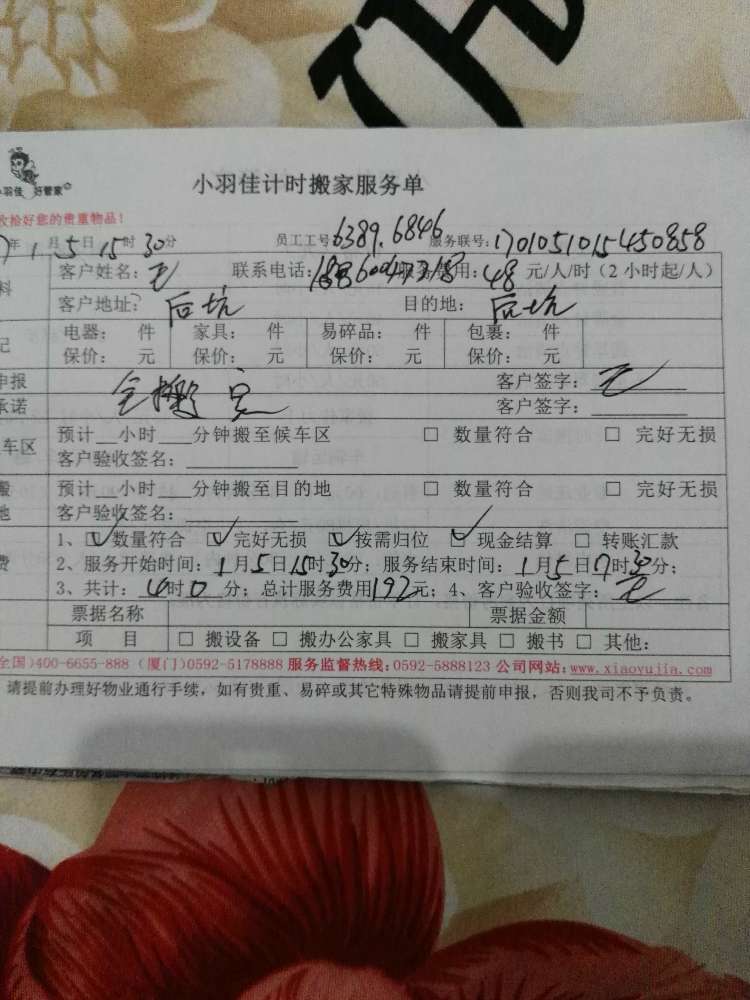 小羽佳 好管家
小羽佳计时搬家服务单
收拾好您的贵重物品！
7年1月5日15时30分 员工工号:6389.6846 服务联号:1701051015450858
料 客户姓名: 联系电话: 服务费用:48元/人/时（2小时起/人）
客户地址: 后坑 目的地: 后坑
记 电器: 件 家具: 件 易碎品: 件 包裹: 件
保价: 元 保价: 元 保价: 元 保价: 元
申报 客户签字:
承诺 客户签字:
车区 预计__小时___分钟搬至候车区 □ 数量符合 □ 完好无损
客户验收签名:
搬 预计__小时___分钟搬至目的地 □ 数量符合 □ 完好无损
地 客户验收签名:
1、☑数量符合 ☑完好无损 ☑按需归位 ☑现金结算 □ 转账汇款
费 2、服务开始时间:1月5日15时30分; 服务结束时间:1月5日17时30分;
3、共计: 4时0分; 总计服务费用192元; 4、客户验收签字:
票据名称 票据金额
项 目 □ 搬设备 □ 搬办公家具 □ 搬家具 □ 搬书 □ 其他:
全国)400-6655-888 (厦门)0592-5178888 服务监督热线:0592-5888123 公司网站:www.xiaoyujia.com
请提前办理好物业通行手续，如有贵重、易碎或其它特殊物品请提前申报，否则我司不予负责。